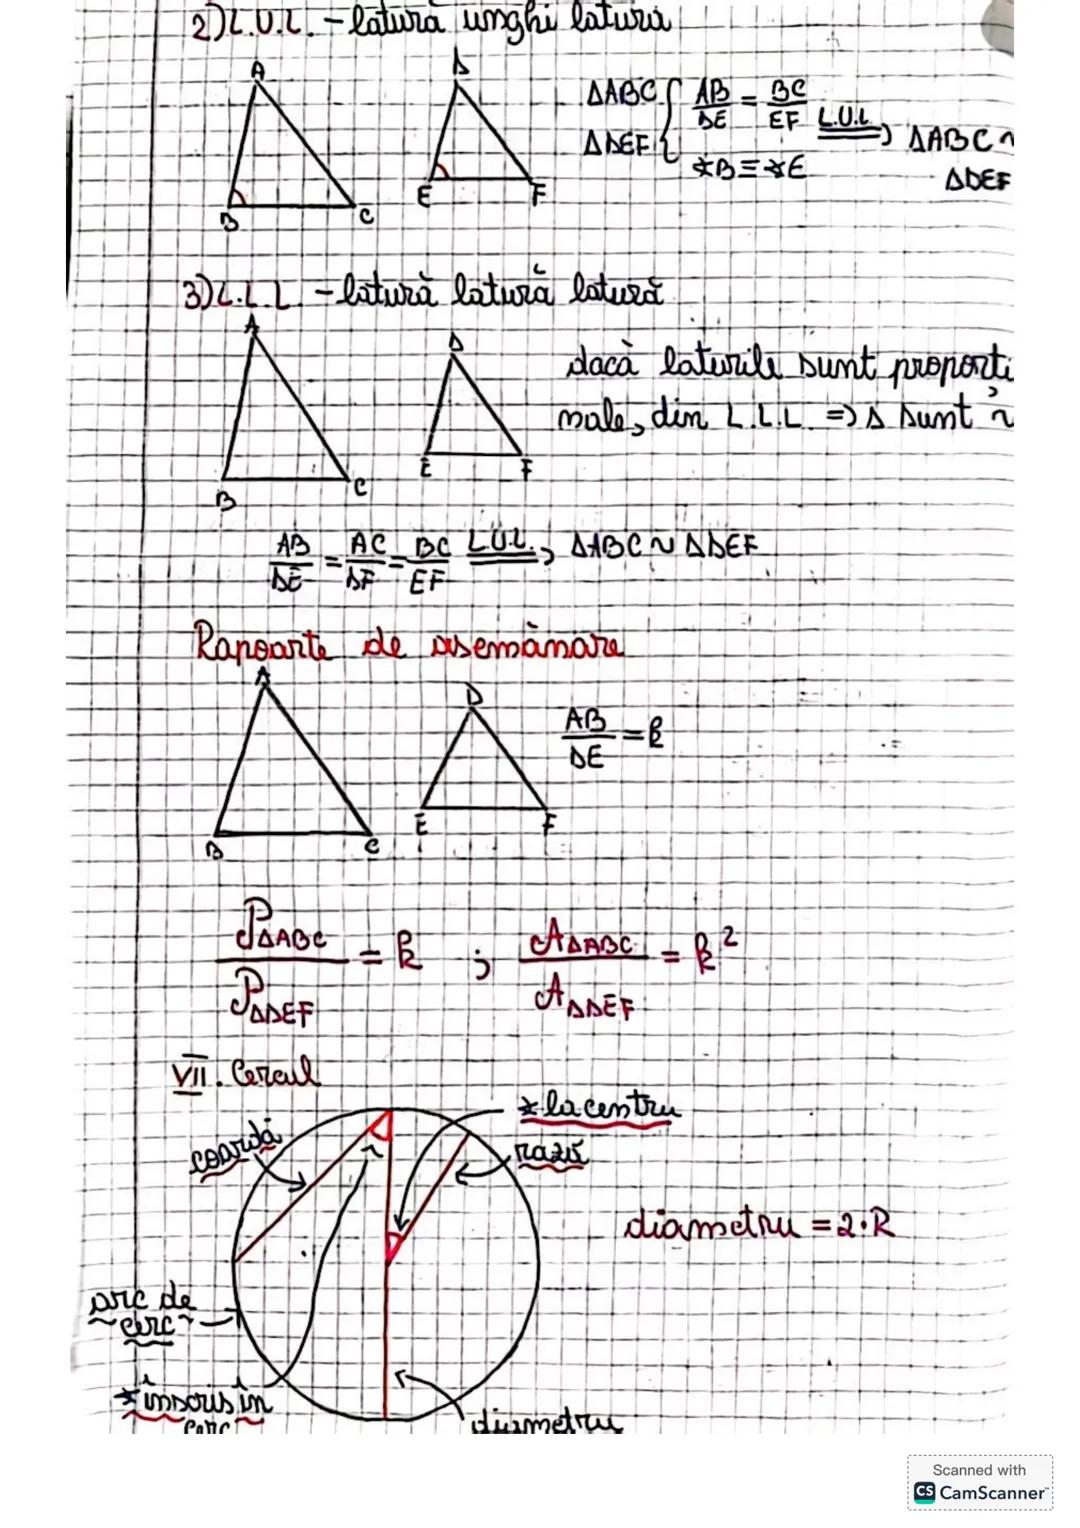 2) L.U.L. - latură unghi latură
A
D
B
C
E
F
ΔABC
ΔDEF
AB/DE = BC/EF
∢B ≡ ∢E
L.U.L ⇒ ΔABC ~
ΔDEF
3) L.L.L. - latură latură latură
A
D
B
C
E
F
dacă laturile sunt proporți
nale, din L.L.L. => Δ sunt ~
AB/DE = AC/DF = BC/EF L.U.L. ⇒ ΔABC ~ ΔDEF
Rapoarte de asemănare
A
D
B
C
E
F
AB/DE = k
PΔABC/PΔDEF = k ; AΔABC/AΔDEF = k²
VII. Cercul
∢ la centru
coardă
rază
diametru = 2·R
arc de
cerc
∢ înscris în
cerc
diametru
Scanned with
CS CamScanner